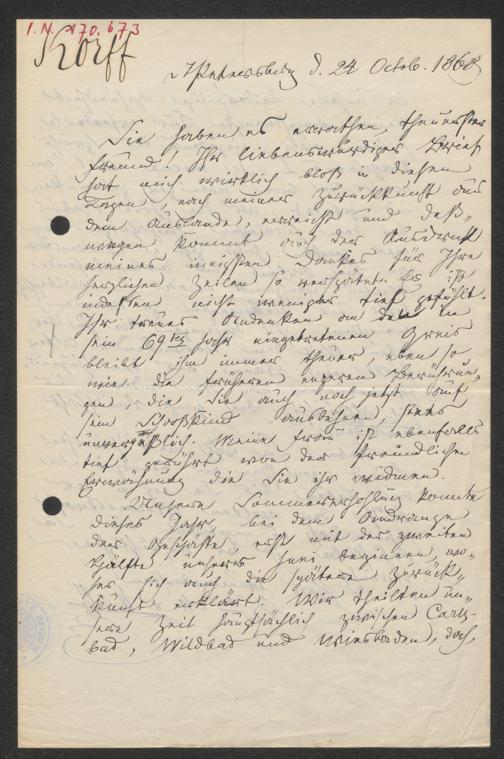 I.N. 170.673
Korff
St Petersburg d. 24 Octob. 1868
Sie haben es errathen, theuerster
Freund! Ihr liebenswürdiger Brief
hat mich wirklich bloß in diesen
Tagen, nach meiner Zurückkunft aus
dem Auslande, erreicht und deß-
wegen kommt auch der Ausdruck
meines innigsten Dankes für Ihre
herzlichen Zeilen so verspätet. Er ist
indessen nicht weniger tief gefühlt.
Ihr treues Andenken an den in
sein 69tes Jahr eingetretenen Greis
bleibt ihm immer theuer, eben so
wie die früheren engeren Berührun-
gen, die Sie auch noch jetzt auf
sein Schooßkind ausdehnen, stets
unvergeßlich. Meine Frau ist ebenfalls
tief gerührt von der freundlichen
Erwähnung die Sie ihr widmen.
Unsere Sommererholung konnte
dieses Jahr, bei dem Andrange
der Geschäfte, erst mit der zweiten
Hälfte unseres Juni beginnen, wo-
her sich auch die spätere Zurück-
kunft erklärt. Wir theilten un-
sere Zeit hauptsächlich zwischen Carls-
bad, Wildbad und Wiesbaden, doch